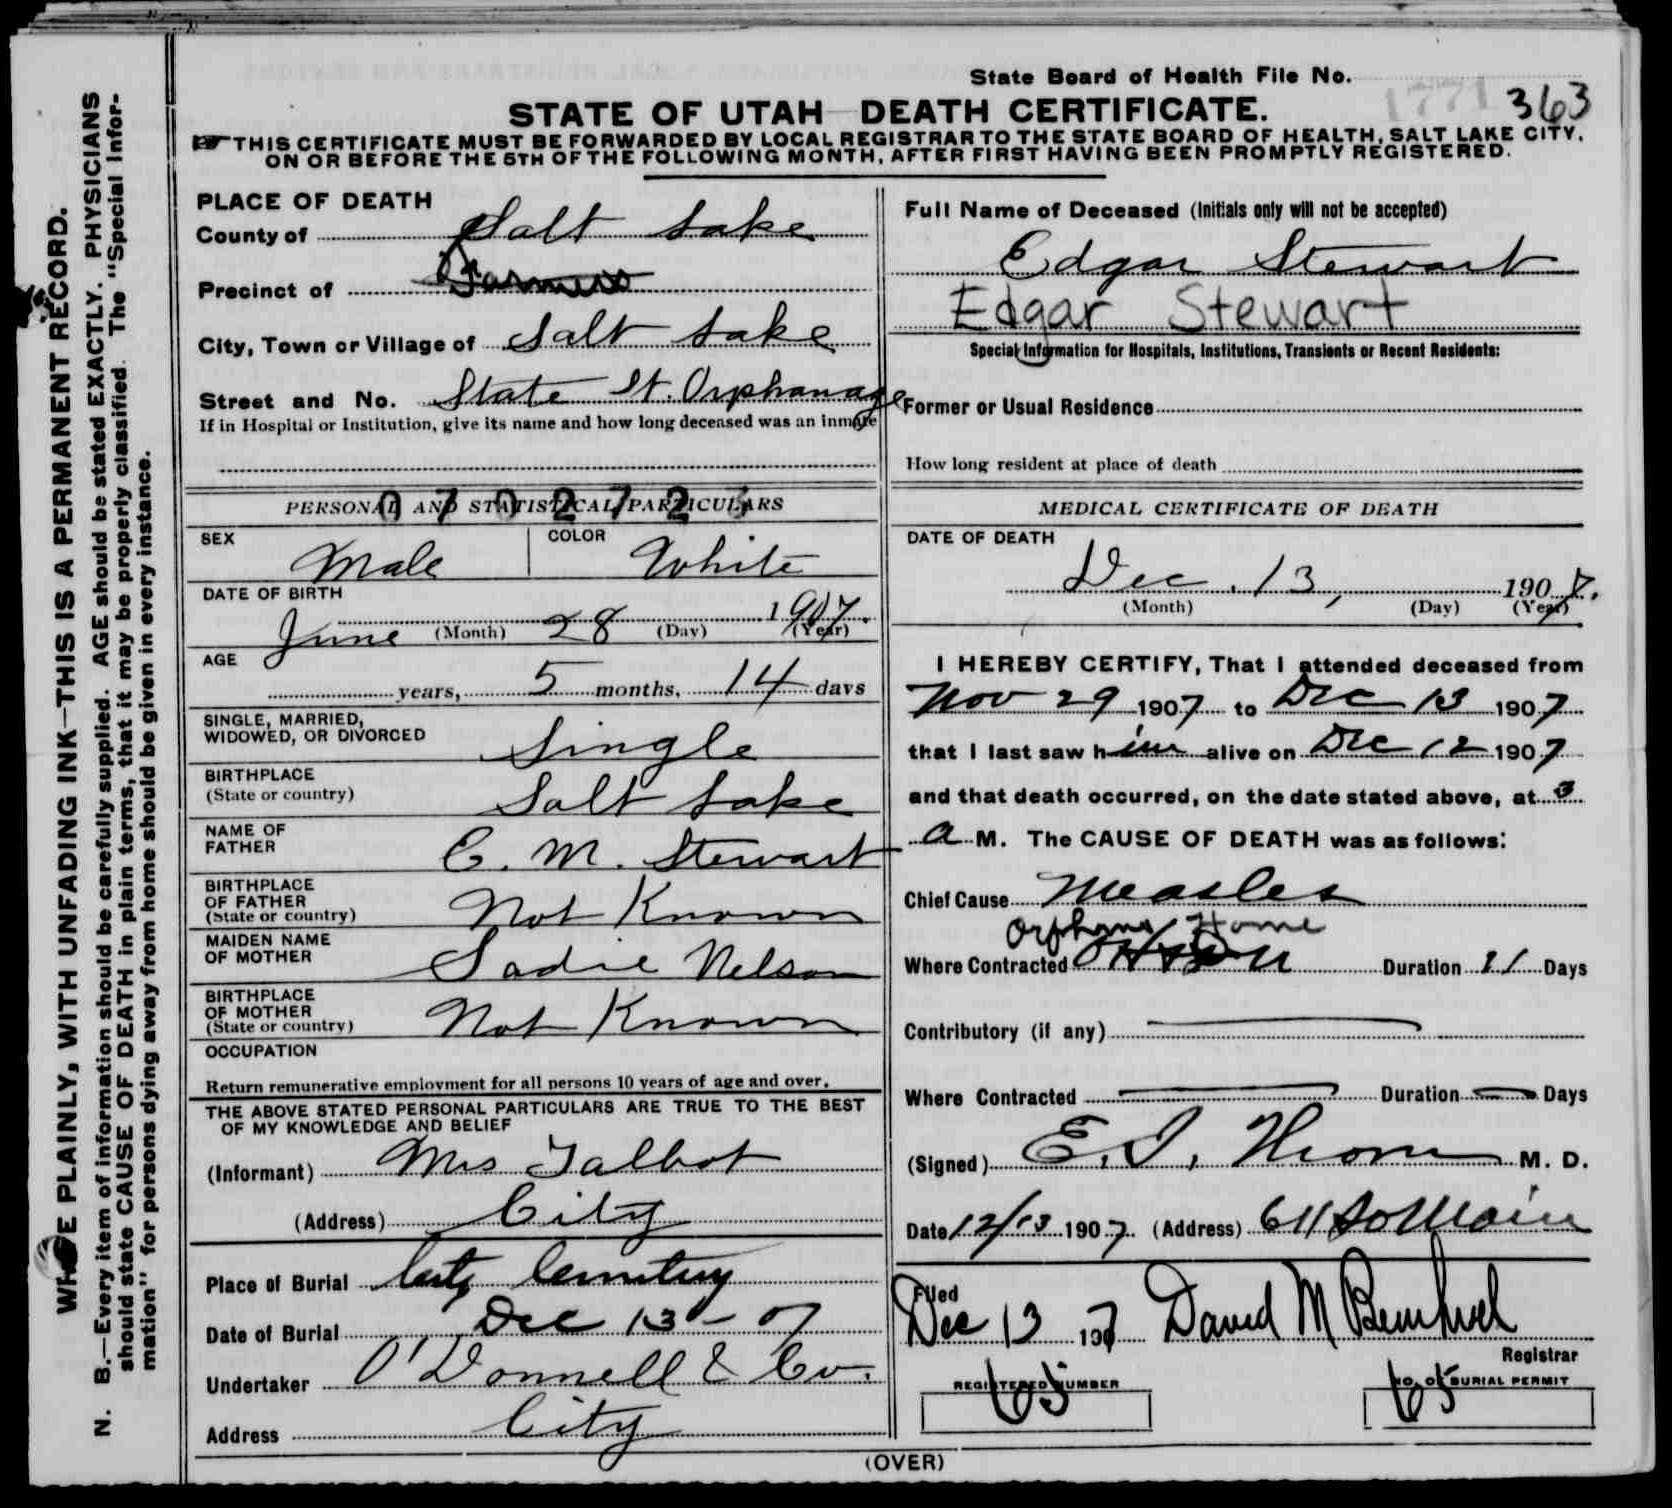 State Board of Health File No. 1771 363
STATE OF UTAH DEATH CERTIFICATE.
THIS CERTIFICATE MUST BE FORWARDED BY LOCAL REGISTRAR TO THE STATE BOARD OF HEALTH, SALT LAKE CITY,
ON OR BEFORE THE 5TH OF THE FOLLOWING MONTH, AFTER FIRST HAVING BEEN PROMPTLY REGISTERED.
WRITE PLAINLY, WITH UNFADING INK—THIS IS A PERMANENT RECORD.
N. B.—Every item of information should be carefully supplied. AGE should be stated EXACTLY. PHYSICIANS
should state CAUSE OF DEATH in plain terms, that it may be properly classified. The "Special Infor-
mation" for persons dying away from home should be given in every instance.
PLACE OF DEATH
County of Salt Lake
Precinct of Farmers
City, Town or Village of Salt Lake
Street and No. State St. Orphanage
If in Hospital or Institution, give its name and how long deceased was an inmate
PERSONAL AND STATISTICAL PARTICULARS
0702723
SEX Male COLOR White
DATE OF BIRTH
June (Month) 28 (Day) 1907. (Year)
AGE
years, 5 months, 14 days
SINGLE, MARRIED,
WIDOWED, OR DIVORCED Single
BIRTHPLACE
(State or country) Salt Lake
NAME OF
FATHER C. M. Stewart
BIRTHPLACE
OF FATHER
(State or country) Not Known
MAIDEN NAME
OF MOTHER Sadie Nelson
BIRTHPLACE
OF MOTHER
(State or country) Not Known
OCCUPATION
Return remunerative employment for all persons 10 years of age and over.
THE ABOVE STATED PERSONAL PARTICULARS ARE TRUE TO THE BEST
OF MY KNOWLEDGE AND BELIEF
(Informant) Mrs Talbot
(Address) City
Place of Burial City Cemetery
Date of Burial Dec 13 - 07
Undertaker O'Donnell & Co.
Address City
Full Name of Deceased (Initials only will not be accepted)
Edgar Stewart
Edgar Stewart
Special Information for Hospitals, Institutions, Transients or Recent Residents:
Former or Usual Residence
How long resident at place of death
MEDICAL CERTIFICATE OF DEATH
DATE OF DEATH
Dec. 13, 1907.
(Month) (Day) (Year)
I HEREBY CERTIFY, That I attended deceased from
Nov 29 1907 to Dec 13 1907
that I last saw him alive on Dec 12 1907
and that death occurred, on the date stated above, at 3
a M. The CAUSE OF DEATH was as follows:
Chief Cause Measles
Orphans Home
Where Contracted Duration 11 Days
Contributory (if any)
Where Contracted Duration Days
(Signed) E. I. M. D.
Date 12/13 1907. (Address) 611 So Main
Filed
Dec 13 1907 David M
Registrar
REGISTERED NUMBER
65
NO. OF BURIAL PERMIT
65
(OVER)